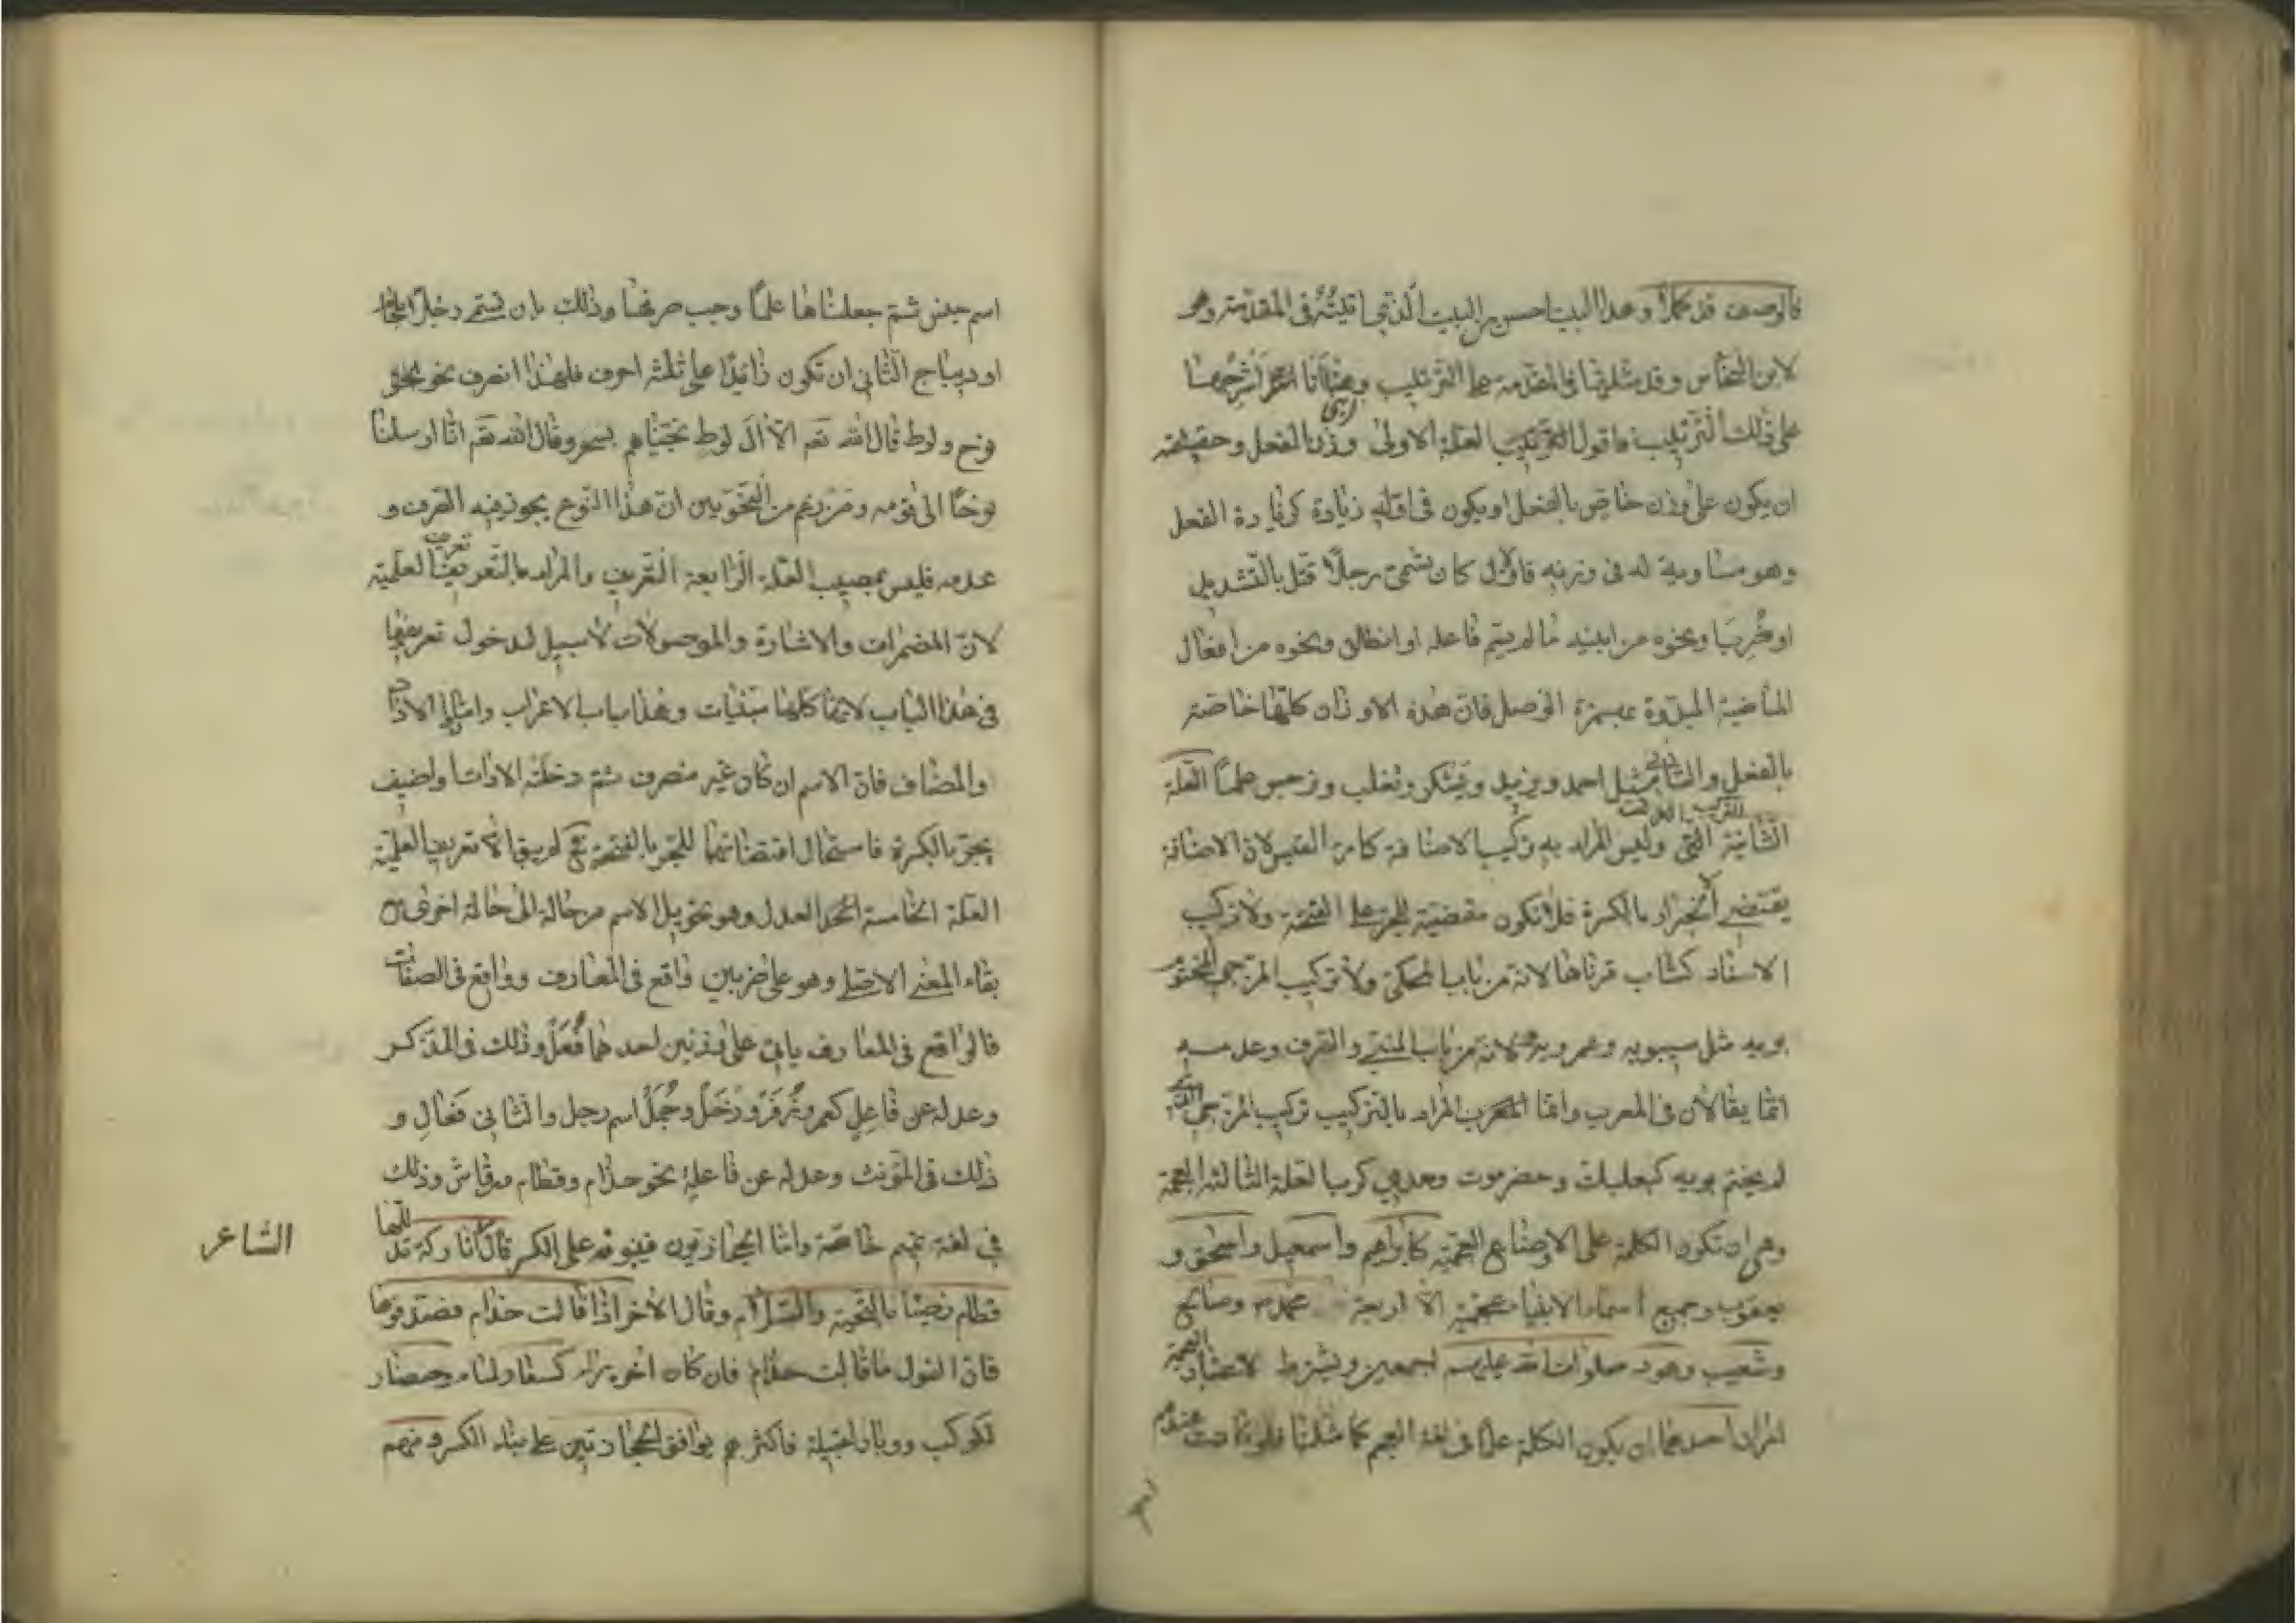 فالوصف قد كملا وهذا البيت احسن من البيت الذي اثبته في المقدمة وهو
لابن النحاس وقد مثلتها في المقدمة على الترتيب وها انا اشرحها
على ذلك الترتيب فاقول العلة الاولى وزن الفعل وحقيقته
ان يكون على وزن خاص بالفعل او يكون في اوله زيادة كزيادة الفعل
وهو مساوية له في وزنه فالاول كان تسمى رجلا قتل بالتشديد
او ضرب ونحوه من ابنية ما لم يسم فاعله او انطلق ونحوه من افعال
الماضية المبدوة بهمزة الوصل فان هذه الاوزان كلها خاصة
بالفعل والثاني مثل احمد ويزيد ويشكر وتغلب ونرجس علما العلة
الثانية التركيب وليس المراد به تركيب الاضافة كامرء القيس لان الاضافة
يقتضي الانجرار بالكسرة فلا تكون مقتضية للجر على الفتحة ولا تركيب
الاسناد كشاب قرناها لانه من باب المحكي ولا تركيب المزجي المختوم
بويه مثل سيبويه وعمرويه لانه من باب المبني والصرف وعدمه
انما يقالان في المعرب وانما المراد بالتركيب تركيب المزجي الذي
لم يختم بويه كبعلبك وحضرموت ومعدي كرب العلة الثالثة العجمة
وهي ان تكون الكلمة على الاوضاع العجمية كابراهيم واسمعيل واسحق و
يعقوب وجميع اسماء الانبياء عجمية الا اربعة محمد وصالح
وشعيب وهود صلوات الله عليهم اجمعين ويشترط لاعتبار العجمة
امران احدهما ان يكون الكلمة علما في لغة العجم كما مثلنا فلو كانت عندهم
اسم جنس ثم جعلناها علما وجب صرفها وذلك بان تسمى رجلا بلجام
او ديباج الثاني ان تكون زائدا على ثلثة احرف فلهذا انصرف نحو
نوح ولوط قال الله تعم الا ال لوط نجيناهم بسحر وقال الله تعم انا ارسلنا
نوحا الى قومه ومن زعم من النحويين ان هذا النوع يجوز فيه الصرف و
عدمه فليس بمصيب العلة الرابعة التعريف والمراد بالتعريف تعريف العلمية
لان المضمرات والاشارة والموصولات لا سبيل لدخول تعريفها
في هذا الباب لانها كلها مبنيات وهذا باب الاعراب واما
والمضاف فان الاسم ان كان غير منصرف ثم دخلته الادات او اضيف
يجر بالكسرة فاستحال اقتضائهما للجر بالفتحة لم يبق الا تعريف العلمية
العلة الخامسة العدل وهو تحويل الاسم من حالة الى حالة اخرى مع
بقاء المعنى الاصلي وهو على ضربين واقع في المعارف وواقع في الصفات
فالواقع في المعارف ياتي على وزنين احدهما فعل وذلك في المذكر
وعدله عن فاعل كعمر وزفر وزحل وجمل اسم رجل والثاني فعال و
ذلك في المؤنث وعدله عن فاعلة نحو حذام وقطام ورقاش وذلك
في لغة تميم خاصة واما الحجازيون فيبنونه على الكسر قال اتاركة تدللها
الشاعر
قطام رضينا بالتحية والسلام وقال الاخر اذا قالت حذام فصدقوها
فان القول ما قالت حذام فان كان اخره راء كسفار لماء وحضار
لكوكب ووبار لقبيلة فاكثرهم يوافق الحجازيين على بناء الكسر ومنهم